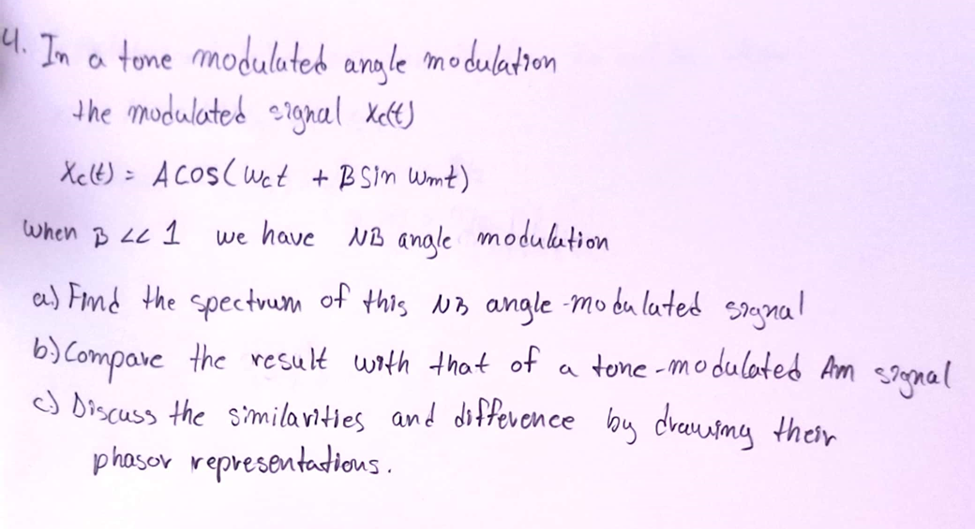 4. In a tone modulated angle modulation
the modulated signal Xc(t)
Xc(t) = A cos(Wct + B sin Wmt)
when B << 1 we have NB angle modulation
a.) Find the spectrum of this NB angle-modulated signal
b.) Compare the result with that of a tone-modulated Am signal
c) Discuss the similarities and difference by drawing their
phasor representations.